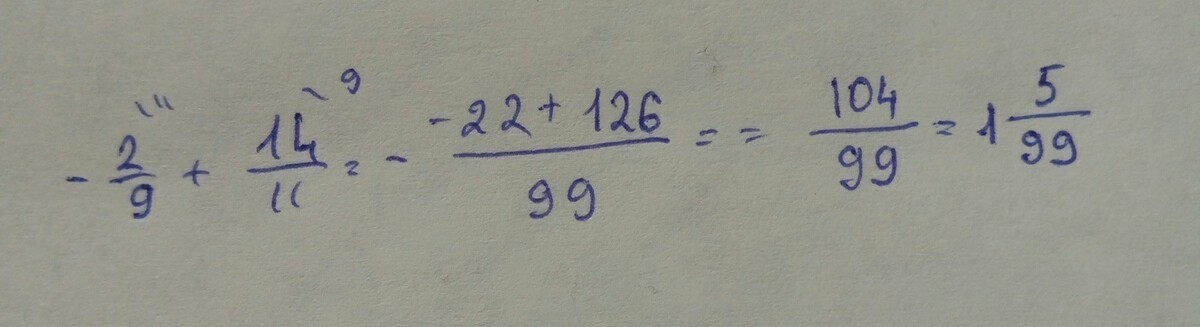 - 2/9 \11 + 14/11 \9 = - -22 + 126/99 = = 104/99 = 1 5/99